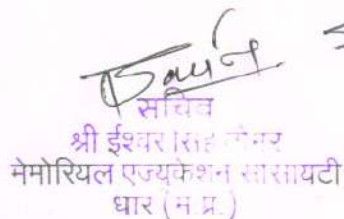 सचिव
श्री ईश्वर सिंह
मेमोरियल एज्यूकेशन सोसायटी
धार (म.प्र.)